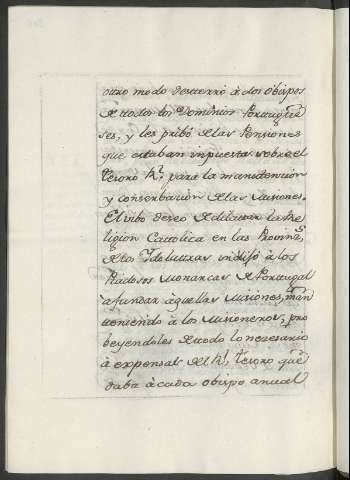 otro modo desterró à dos Obispos
de todos los Dominios Portugue
ses, y les pribó de las Pensiones
que estaban inpuestas sobre el
tesoro Rl. para la manutencion
y conserbacion de las Misiones.
El vibo deseo de dilatar la Re
ligion Cattolica en las Provinzs.
de los Ydolatras indujo à los
Piadosos Monarcas de Portugal
a fundar àquellas Misiones, man
teniendo a los Misioneros, pro
beyendoles de todo lo necesario
à expensas del Rl. tesoro que
daba à cada Obispo anual